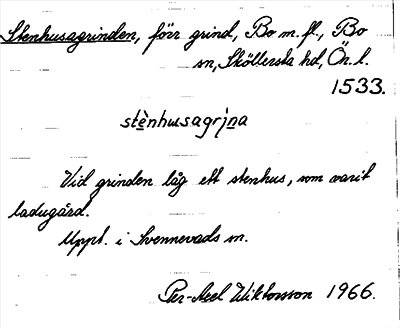 Stenhusagrinden, förr grind, Bo m.fl., Bo
sn, Sköllersta hd, Ön. l.
1533.
stènhusagrina
Vid grinden låg ett stenhus, som varit
ladugård.
Uppt. i Svennevads sn.
Per-Axel Wiktorsson 1966.